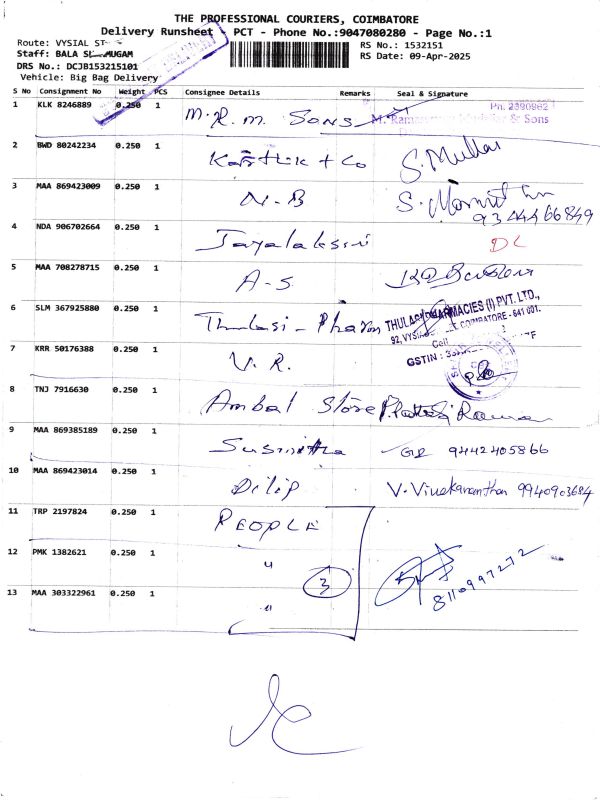 THE PROFESSIONAL COURIERS, COIMBATORE
Delivery Runsheet - PCT - Phone No.:9047080280 - Page No.:1
Route: VYSIAL
Staff: BALA
RS No.: 1532151
DRS No.: DCJB153215101
RS Date: 09-Apr-2025
Vehicle: Big Bag Delivery
S No Consignment No Weight PCS Consignee Details Remarks Seal & Signature
1 KLK 8246889 0.250 1 M.R.M. Sons
Ph. 2390962
& Sons
2 BWD 80242234 0.250 1 Karthik + Co
3 MAA 869423009 0.250 1 N-B
9344466849
4 NDA 906702664 0.250 1 DL
5 MAA 708278715 0.250 1 A-S
6 SLM 367925880 0.250 1 Thulasi-Pharm
THULASI PHARMACIES (I) PVT. LTD.,
COIMBATORE - 641 001.
Cell
GSTIN :
7 KRR 50176388 0.250 1 V.R.
8 TNJ 7916630 0.250 1 Ambal Store
9 MAA 869385189 0.250 1 Susmitha 9442405866
10 MAA 869423014 0.250 1 Dilip V. Vivekananthan 9940903684
11 TRP 2197824 0.250 1 PEOPLE
12 PMK 1382621 0.250 1 " 3
8110997272
13 MAA 303322961 0.250 1 "